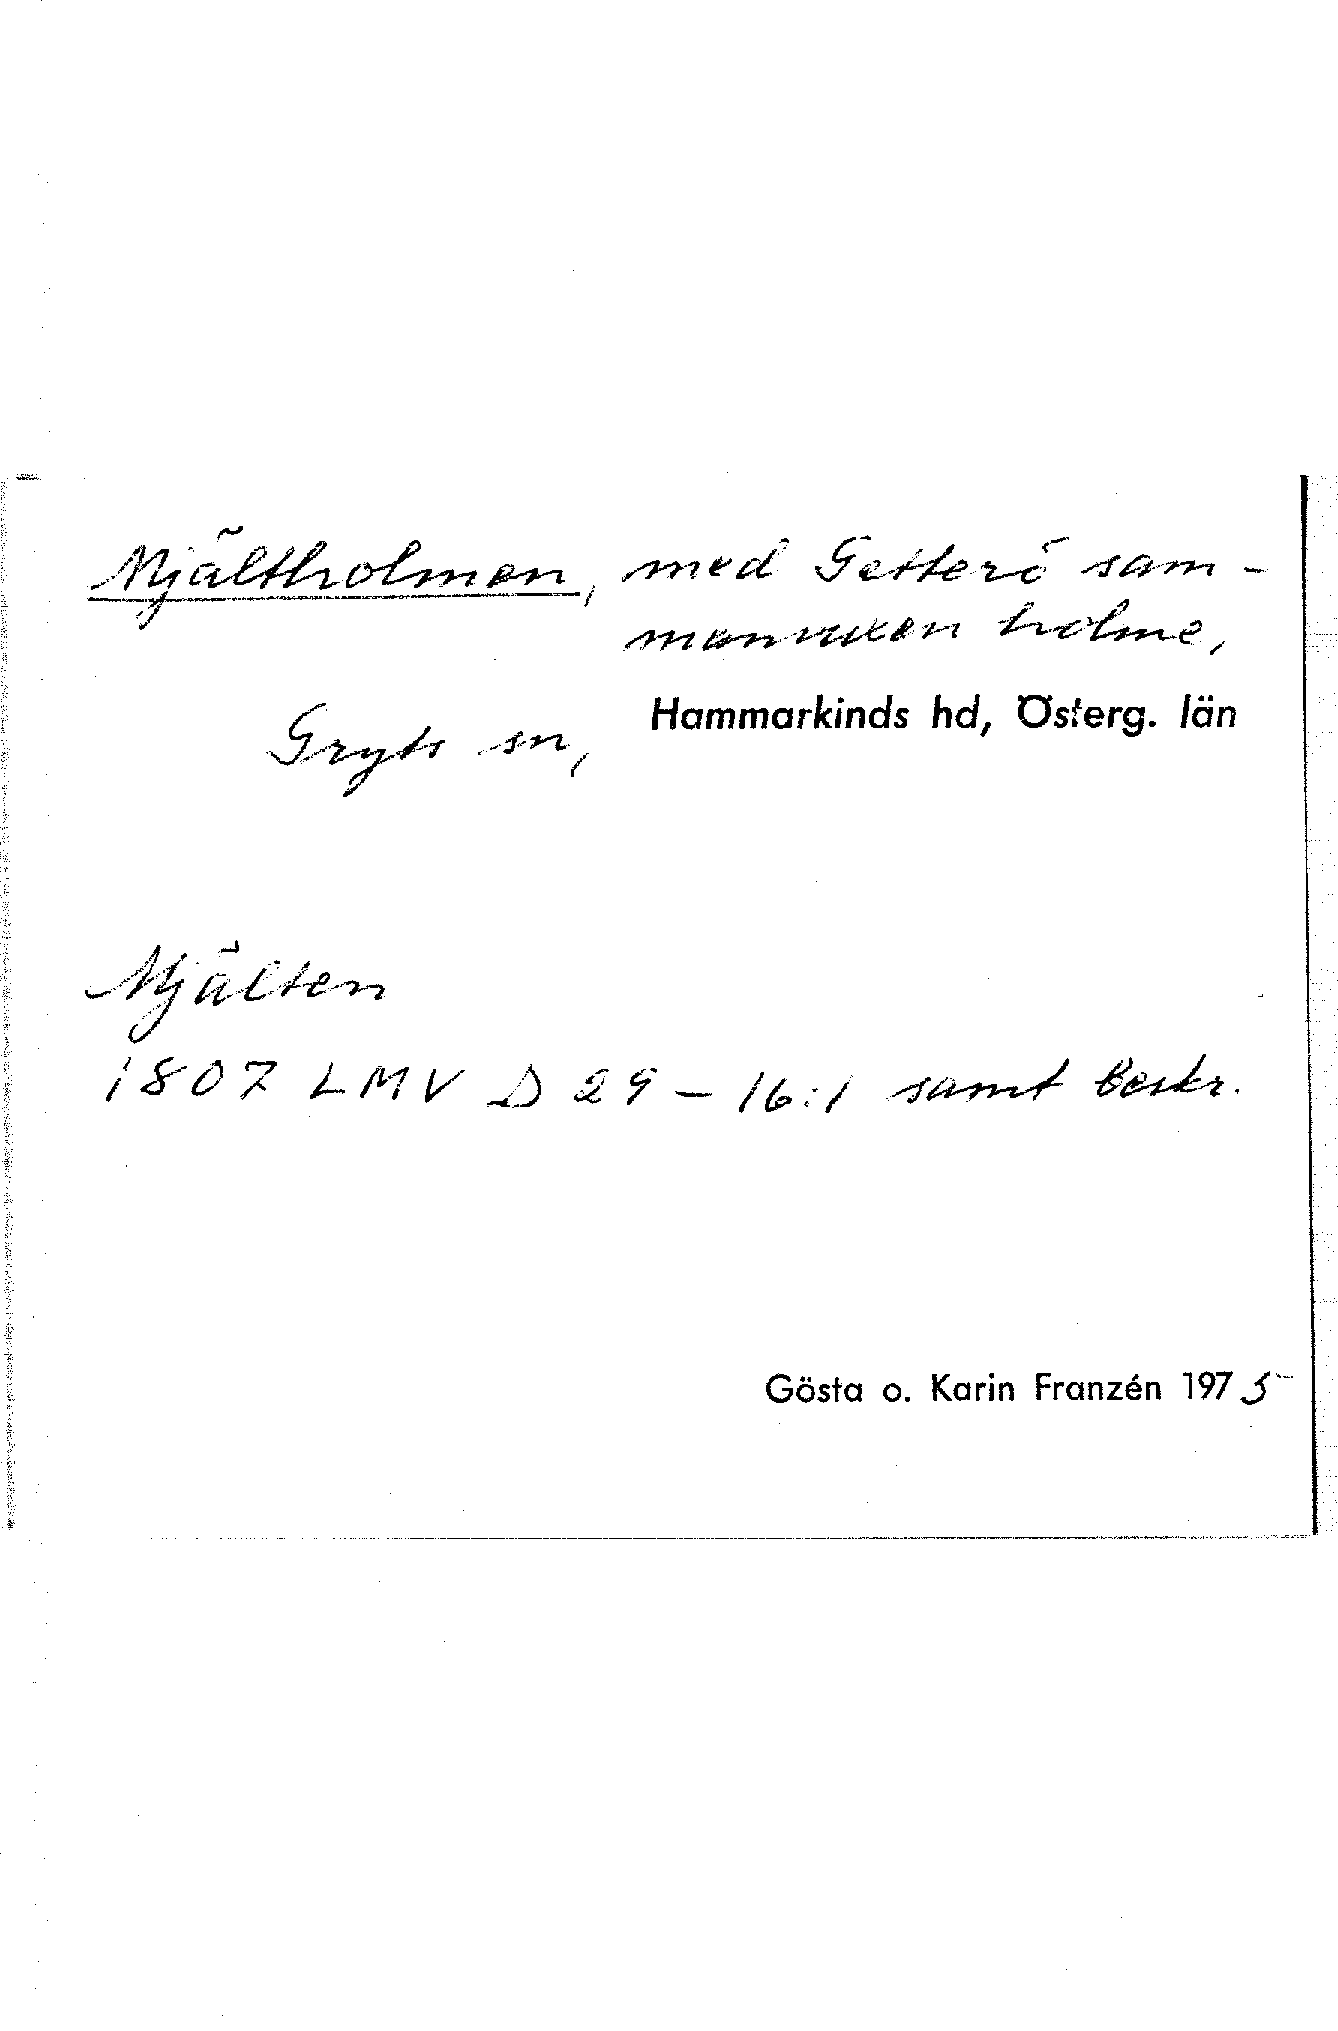 Mjältholmen, med Getterö sam-
manvuxen holme,
Gryts sn, Hammarkinds hd, Österg. län
Mjälten
1807 LMV D 29 - 16:1 samt beskr.
Gösta o. Karin Franzén 1975